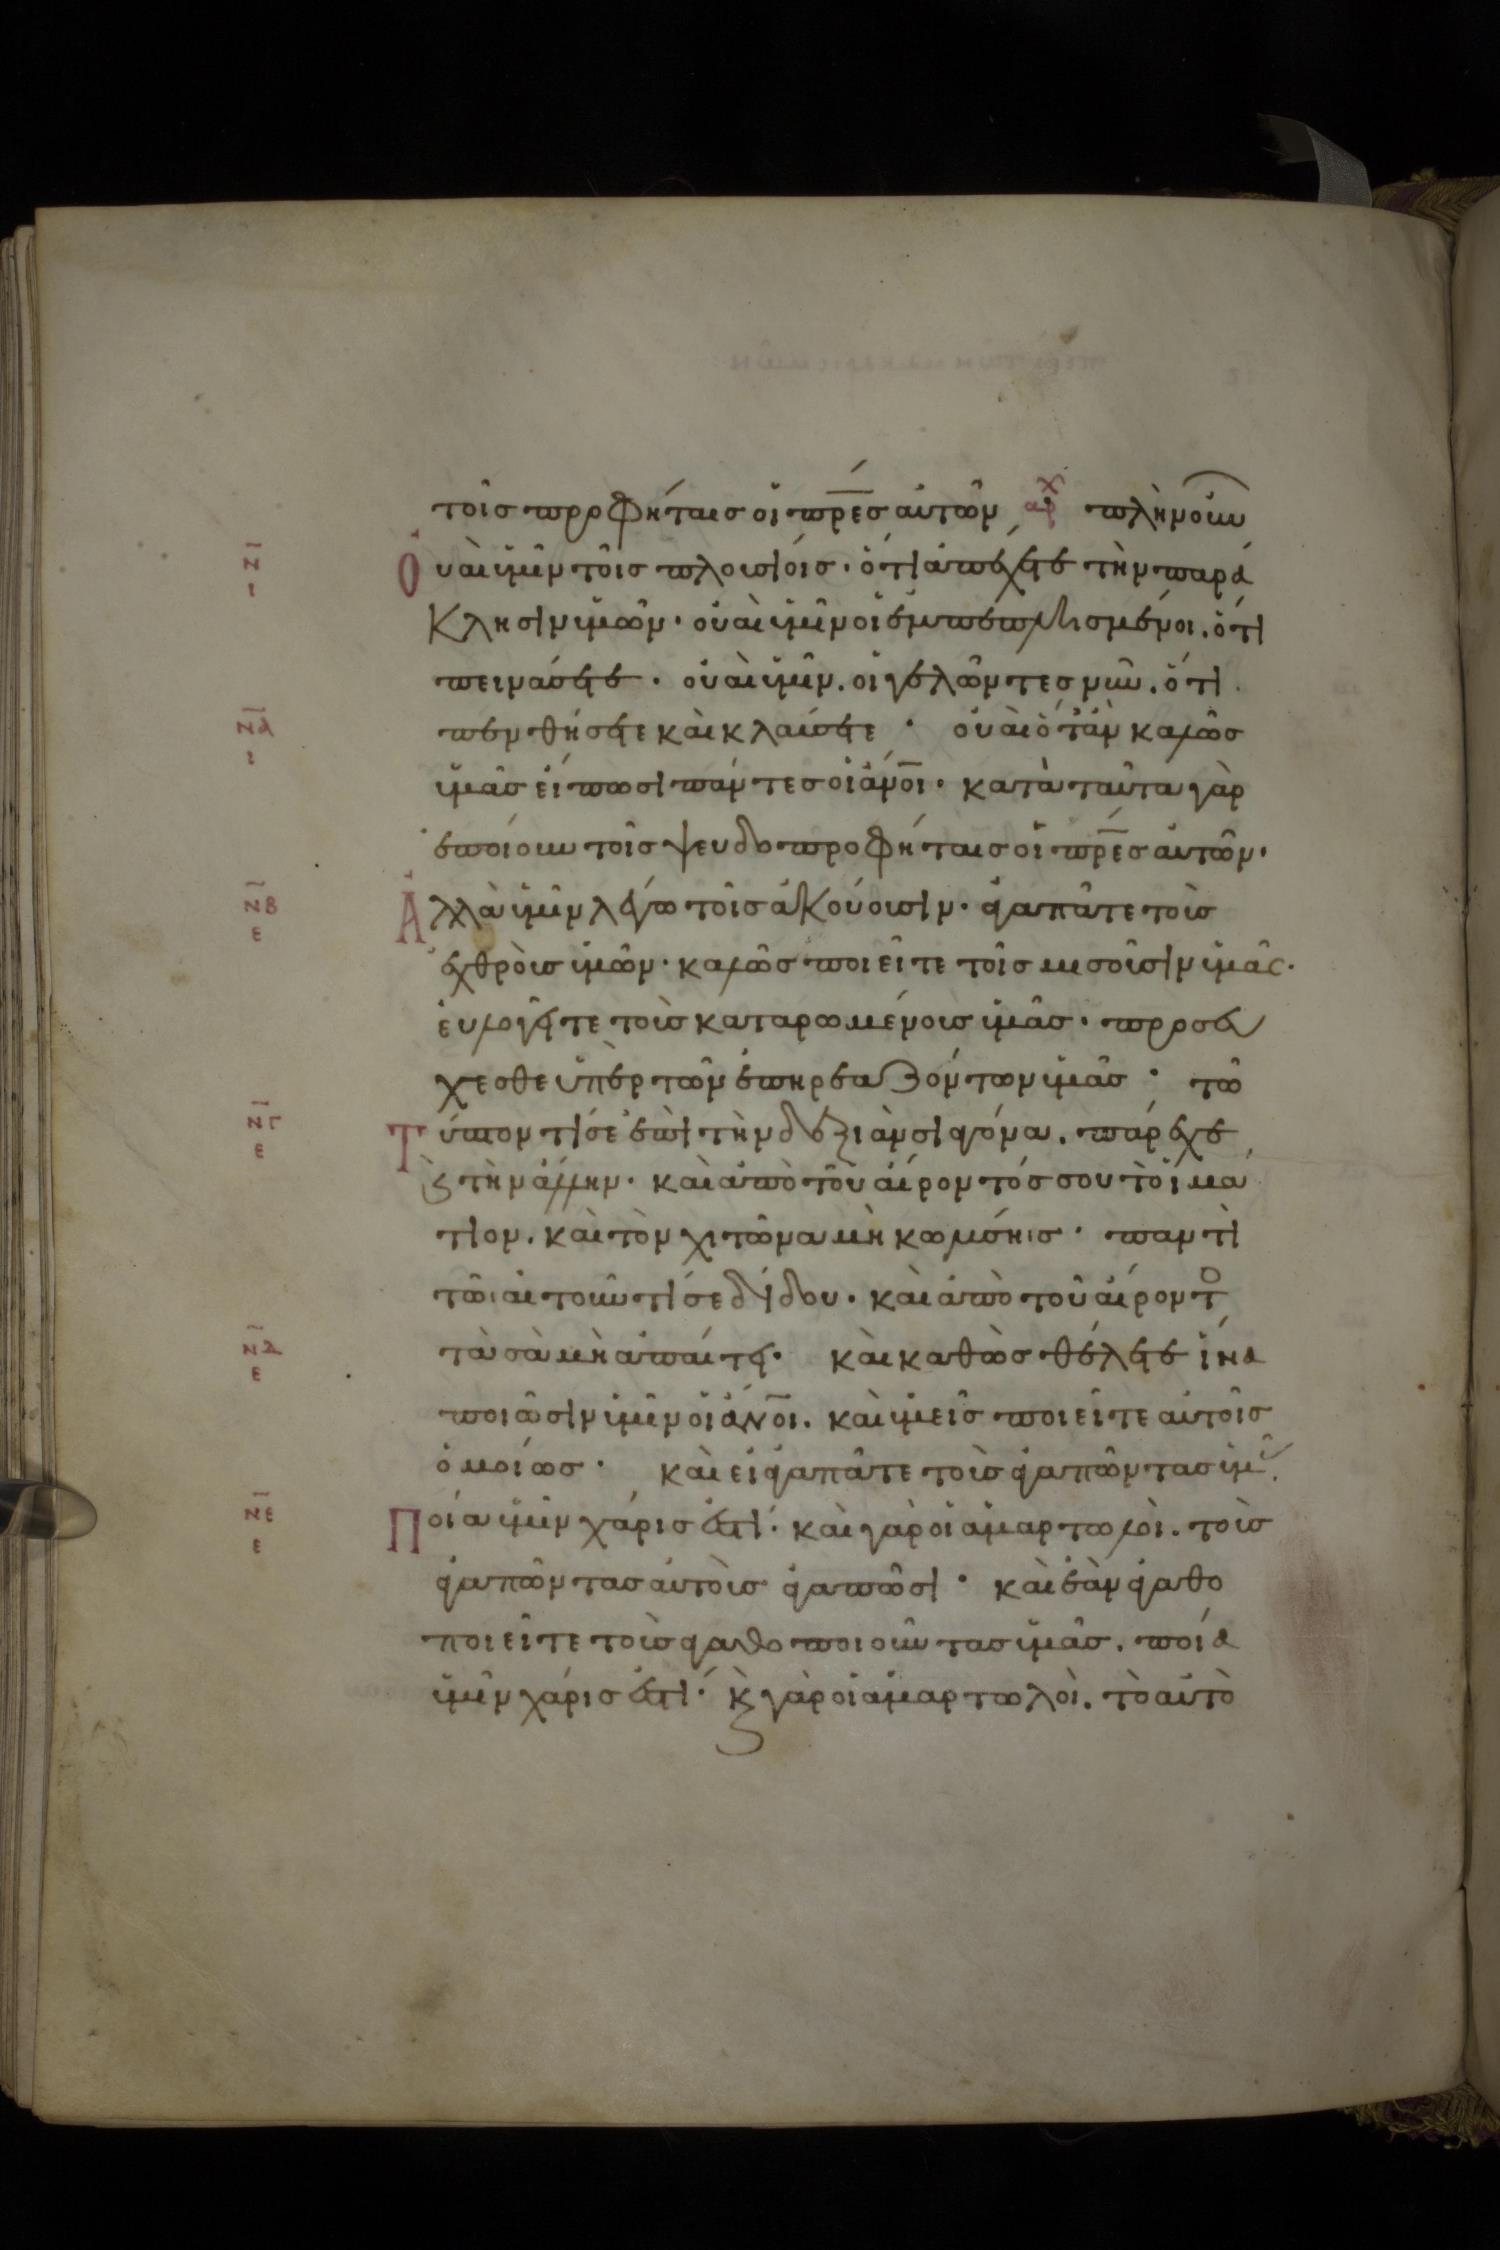 τοῖς προφήταις οἱ πρ̅ε̅ς αὐτῶν αρχ πλὴν οὐ
Οὐαὶ ὑμῖν τοῖς πλουσίοις· ὅτι ἀπέχετε τὴν παρά
κλησιν ὑμῶν· οὐαὶ ὑμῖν οἱ ἐμπεπλησμένοι. ὅτι
πεινάσετε· οὐαὶ ὑμῖν. οἱ γελῶντες νῦν. ὅτι
πενθήσετε καὶ κλαύσετε· οὐαὶ ὅταν καλῶς
ὑμᾶς εἴπωσι πάντες οἱ ἄν̅ο̅ι̅· κατὰ ταῦτα γὰρ
ἐποίουν τοῖς ψευδοπροφήταις οἱ πρ̅ε̅ς αὐτῶν·
Ἀλλὰ ὑμῖν λέγω τοῖς ἀκούουσιν· ἀγαπᾶτε τοὺς
ἐχθροὺς ὑμῶν· καλῶς ποιεῖτε τοῖς μισοῦσιν ὑμᾶς·
εὐλογεῖτε τοὺς καταρωμένους ὑμᾶς· προσεύ
χεσθε ὑπὲρ τῶν ἐπηρεαζόντων ὑμᾶς· τῶ
Τύπτοντί σε ἐπὶ τὴν δεξιὰν σιαγόνα. πάρεχε
ϗ τὴν ἄλλην· καὶ ἀπὸ τοῦ αἴροντός σου τὸ ἱμά
τιον. καὶ τὸν χιτῶνα μὴ κωλύσηις· παντὶ
τῶι αἰτοῦντί σε δίδου· καὶ ἀπὸ τοῦ αἴροντο
τὰ σὰ μὴ ἀπαίτει· καὶ καθὼς θέλετε ἵνα
ποιῶσιν ὑμῖν οἱ ἄν̅ο̅ι̅. καὶ ὑμεῖς ποιεῖτε αὐτοῖς
ὁμοίως· καὶ εἰ ἀγαπᾶτε τοὺς ἀγαπῶντας ὑμᾶς.
Ποία ὑμῖν χάρις ἐστί· καὶ γὰρ οἱ ἁμαρτωλοὶ. τοὺς
ἀγαπῶντας αὐτοὺς ἀγαπῶσι· καὶ ἐὰν ἀγαθο
ποιεῖτε τοὺς ἀγαθοποιοῦντας ὑμᾶς. ποία
ὑμῖν χάρις ἐστί· ϗ γὰρ οἱ ἁμαρτωλοὶ. τὸ αὐτὸ
ν̅
ι
ν̅α̅
ι
ν̅β̅
ε
ν̅γ̅
ε
ν̅δ̅
ε
ν̅ε̅
ε